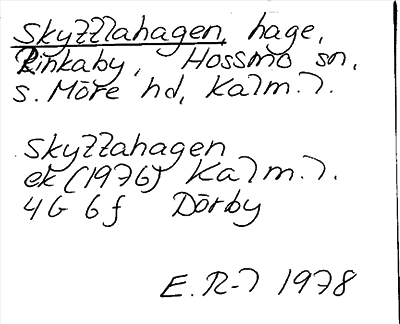 Skyttlahagen, hage,
Rinkaby, Hossmo sn,
S. Möre hd, Kalm. l.
Skyttlahagen
ek (1976) Kalm. l.
4G 6f Dörby
E. R-l 1978